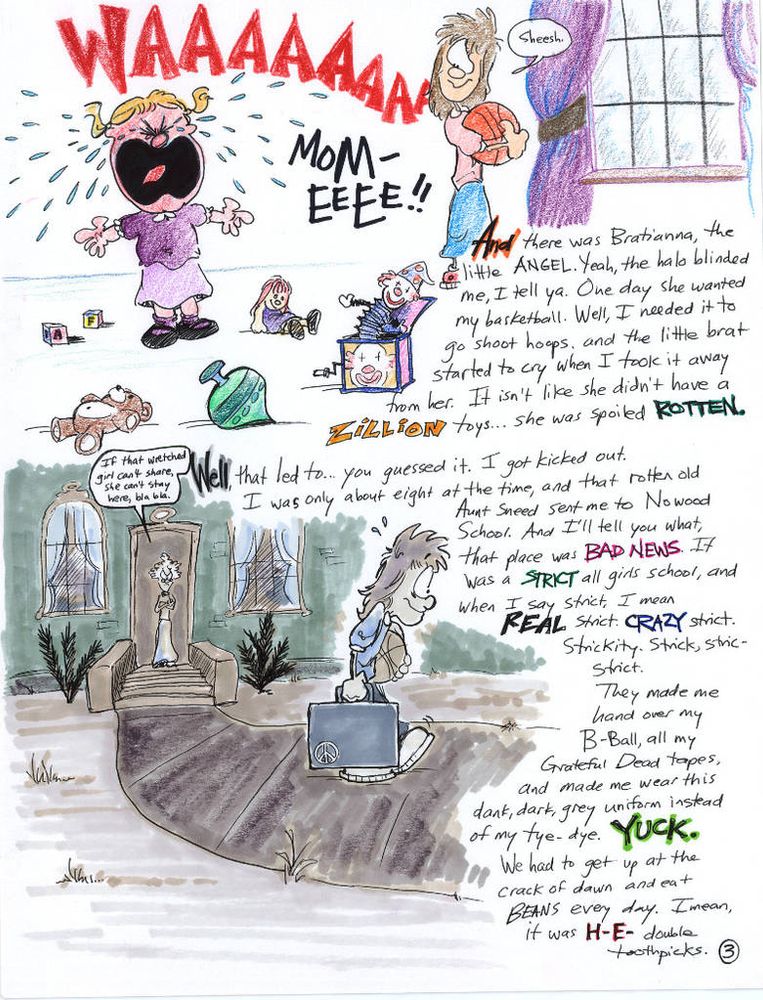 WAAAAAAAA
Sheesh.
MOM-
EEEE!!
And there was Bratianna, the
little ANGEL. Yeah, the halo blinded
me, I tell ya. One day she wanted
my basketball. Well, I needed it to
go shoot hoops, and the little brat
started to cry when I took it away
from her. It isn't like she didn't have a
ZILLION toys... she was spoiled ROTTEN.
A F
If that wretched
girl can't share,
she can't stay
here, bla bla.
Well, that led to... you guessed it. I got kicked out.
I was only about eight at the time, and that rotten old
Aunt Sneed sent me to Nowood
School. And I'll tell you what,
that place was BAD NEWS. It
was a STRICT all girls school, and
when I say strict, I mean
REAL strict. CRAZY strict.
Strickity. Strick, stric-
strict.
They made me
hand over my
B-Ball, all my
Grateful Dead tapes,
and made me wear this
dank, dark, grey uniform instead
of my tye-dye. YUCK.
We had to get up at the
crack of dawn and eat
BEANS every day. I mean,
it was H-E- double
toothpicks. 3